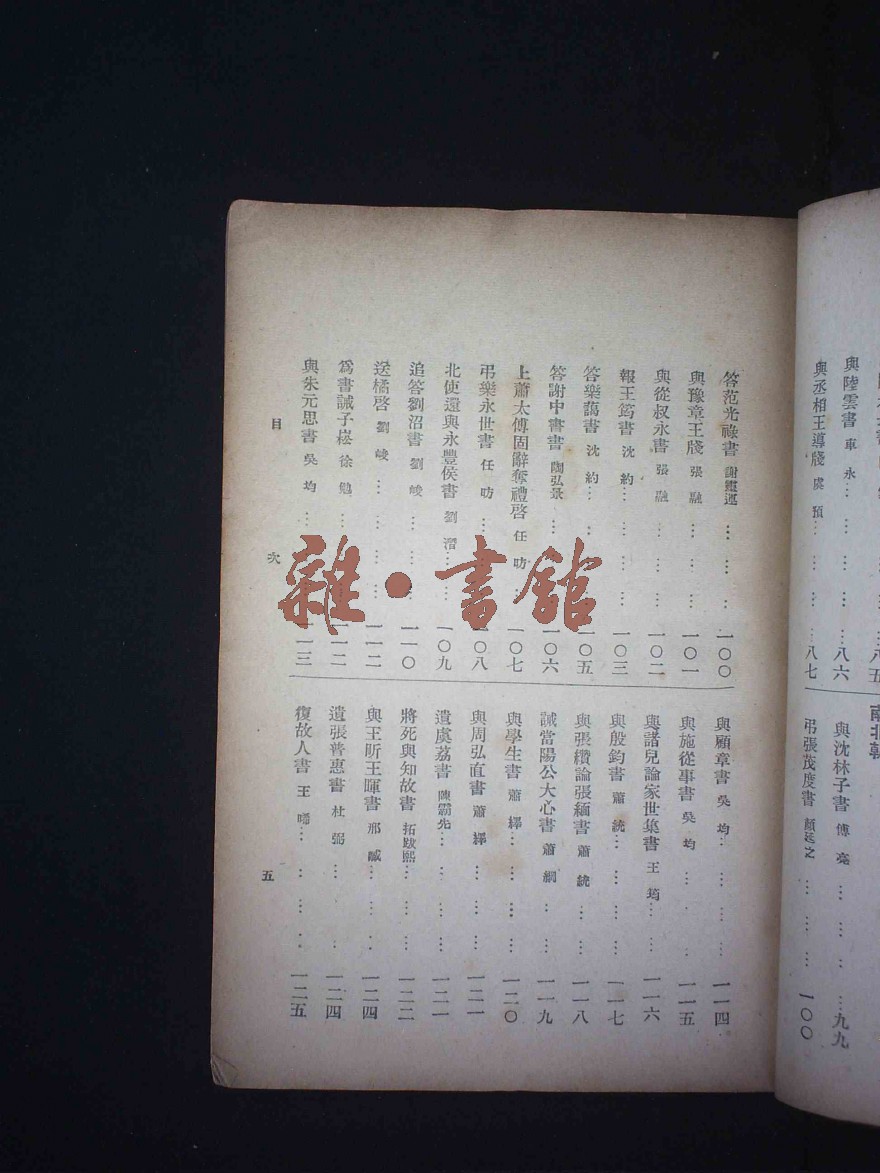 與陸雲書 車永 八六
與丞相王導牋 虞預 八七
南北朝
與沈林子書 傅亮 九九
弔張茂度書 顏延之 一〇〇
答范光祿書 謝靈運 一〇〇
與豫章王牋 張融 一〇一
與從叔永書 張融 一〇二
報王筠書 沈約 一〇三
答樂藹書 沈約 一〇五
答謝中書書 陶弘景 一〇六
上蕭太傅固辭奪禮啓 任昉 一〇七
弔樂永世書 任昉 一〇八
北使還與永豐侯書 劉潛 一〇九
追答劉沼書 劉峻 一一〇
送橘啓 劉峻 一一二
爲書誡子崧 徐勉 一一二
與朱元思書 吳均 一一三
與顧章書 吳均 一一四
與施從事書 吳均 一一五
與諸兒論家世集書 王筠 一一六
與殷鈞書 蕭統 一一七
與張纘論張緬書 蕭統 一一八
誡當陽公大心書 蕭綱 一一九
與學生書 蕭繹 一二〇
與周弘直書 蕭繹 一二一
遺虞荔書 陳霸先 一二一
將死與知故書 拓跋熙 一二二
與王昕王暉書 邢臧 一二四
遺張普惠書 杜弼 一二四
復故人書 王 一二五
目次
五
雜·書館